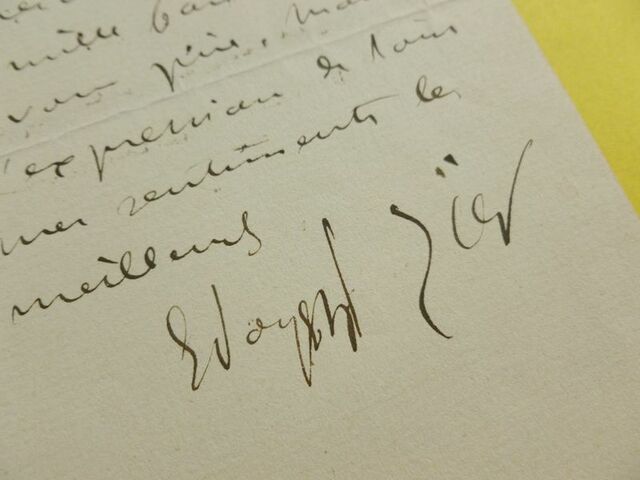 mille
vous prie, 
l'expression de tous
mes sentiments les
meilleurs
Edouard Zier